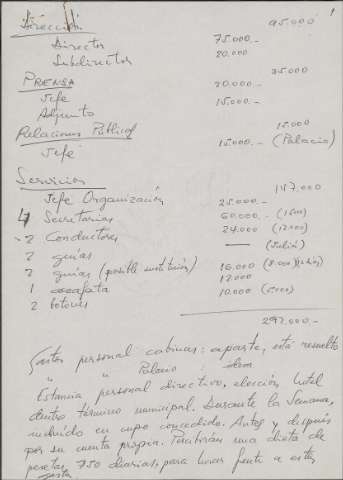 1
Dirección 95.000
Director 75.000.-
Subdirector 20.000
PRENSA 35.000
Jefe 20.000.-
Adjunto 15.000.-
Relaciones Públicas 15.000
Jefe 15.000.- (Palacio)
Servicios 147.000
Jefe Organización 25.000.-
4 Secretarias 60.000.- (15.00)
2 Conductores 24.000 (12.000)
2 guías — (Julia)
2 guías (posible sustitución) 16.000 (8.000)
1 azafata 12.000
2 botones 10.000 (5.000)
292.000.-
Gastos personal cabinas: aparte, está resuelto
" " Palacio: idem
Estancia personal directivo, elección hotel
dentro término municipal. Durante la Semana,
incluido en cupo concedido. Antes y después
por su cuenta propia. Percibirán una dieta de
pesetas 750 diarias, para hacer frente a estos
gastos